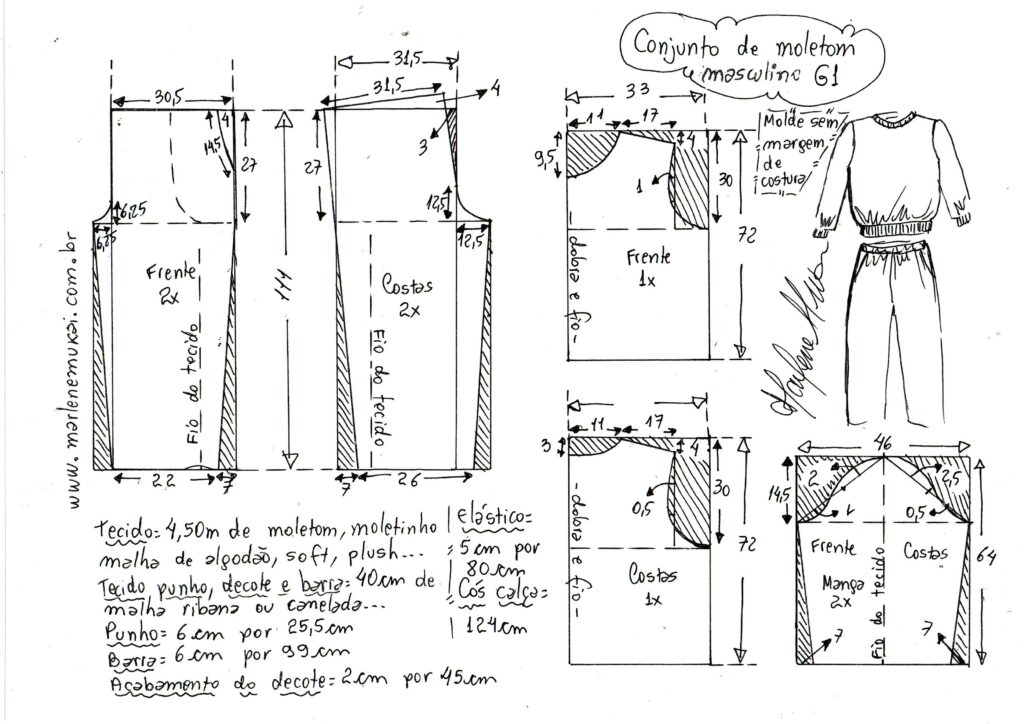 Conjunto de moletom
masculino G1
Molde sem
margem
de
costura
www.marlenemukai.com.br
30,5
4
14,5
27
6,25
6,25
Frente
2x
Fio do tecido
22
7
111
31,5
31,5
4
3
27
12,5
12,5
Costas
2x
Fio do tecido
7
26
33
11
17
9,5
4
1
30
72
Frente
1x
-dobra e fio-
11
17
3
4
0,5
30
72
Costas
1x
-dobra e fio-
46
2
2,5
14,5
1
0,5
Frente
Costas
64
Manga
2x
Fio do tecido
7
7
Tecido= 4,50m de moletom, moletinho
malha de algodão, soft, plush...
Tecido punho, decote e barra= 40cm de
malha ribana ou canelada...
Punho= 6cm por 25,5cm
Barra= 6cm por 99cm
Acabamento do decote= 2cm por 45cm
Elástico=
5cm por
80cm
Cós calça=
124cm